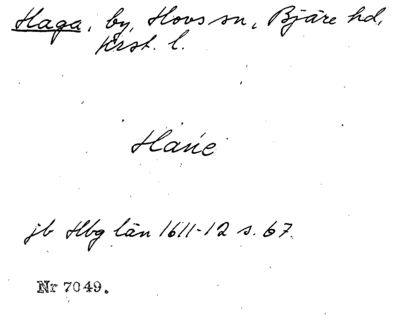 Haga, by, Hovs sn, Bjäre hd,
Krst. l.
Haue
jb Hbg län 1611-12 s. 67.
Nr 7049.